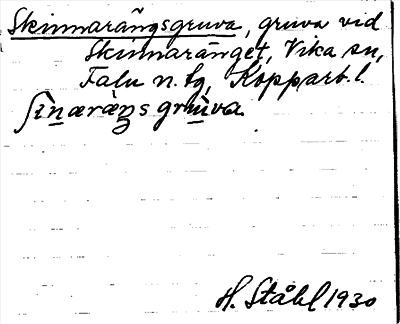 Skinnarängsgruva, gruva vid
Skinnaränget, Vika sn,
Falu n. tg, Kopparb. l.
ʃìnæræŋsgrùva
H. Ståhl 1930